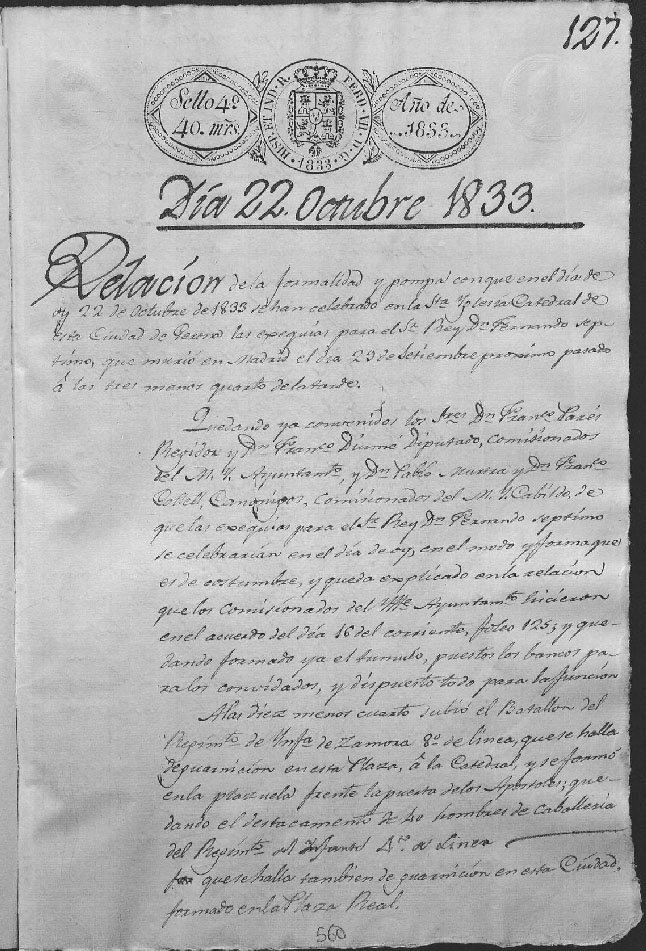 127.
Sello 4º
40. mrs.
HISP. ET IND. R. FERD. VII. D. G. 1833
Año de
1833.
Día 22. Octubre 1833.
Relacion de la formalidad y pompa con que en el día de
oy 22 de Octubre de 1833 se han celebrado en la Sta Yglesia Catedral de
esta Ciudad de Gerona las exequias para el Sr. Rey Dn. Fernando sep-
timo, que murió en Madrid el dia 29 de Setiembre proximo pasado
á las tres menos quarto de la tarde.
Quedando ya convenidos los Sres Dn Franco Parés
Regidor y Dn Franco Diumé Diputado, comisionados
del M. Y. Ayuntamto, y Dn Pablo y Dn Franco
Canonigos, Comisionados del M. Y. Cabildo, de
que las exequias para el Sr. Rey Dn. Fernando septimo
se celebrarian en el día de oy, en el modo y forma que
es de costumbre, y queda explicado en la relacion
que los Comisionados del Ytte Ayuntamto hicieron
en el acuerdo del día 16 del corriente, foleo 125; y que-
dando formado ya el tumulo, puestos los bancos pa-
ra los convidados, y dispuesto todo para la funcion
A las diez menos cuarto subió el Batallon del
Regimto de Ynfa de Zamora 8º de linea, que se halla
de guarnicion en esta Plaza, á la Catedral, y se formó
en la plazuela frente la puerta de los Apostoles; que-
dando el destacamento de 40 hombres de Caballeria
del Regimto del Infante 4º de Linea
que se halla tambien de guarnicion en esta Ciudad,
formado en la Plaza Real.
560